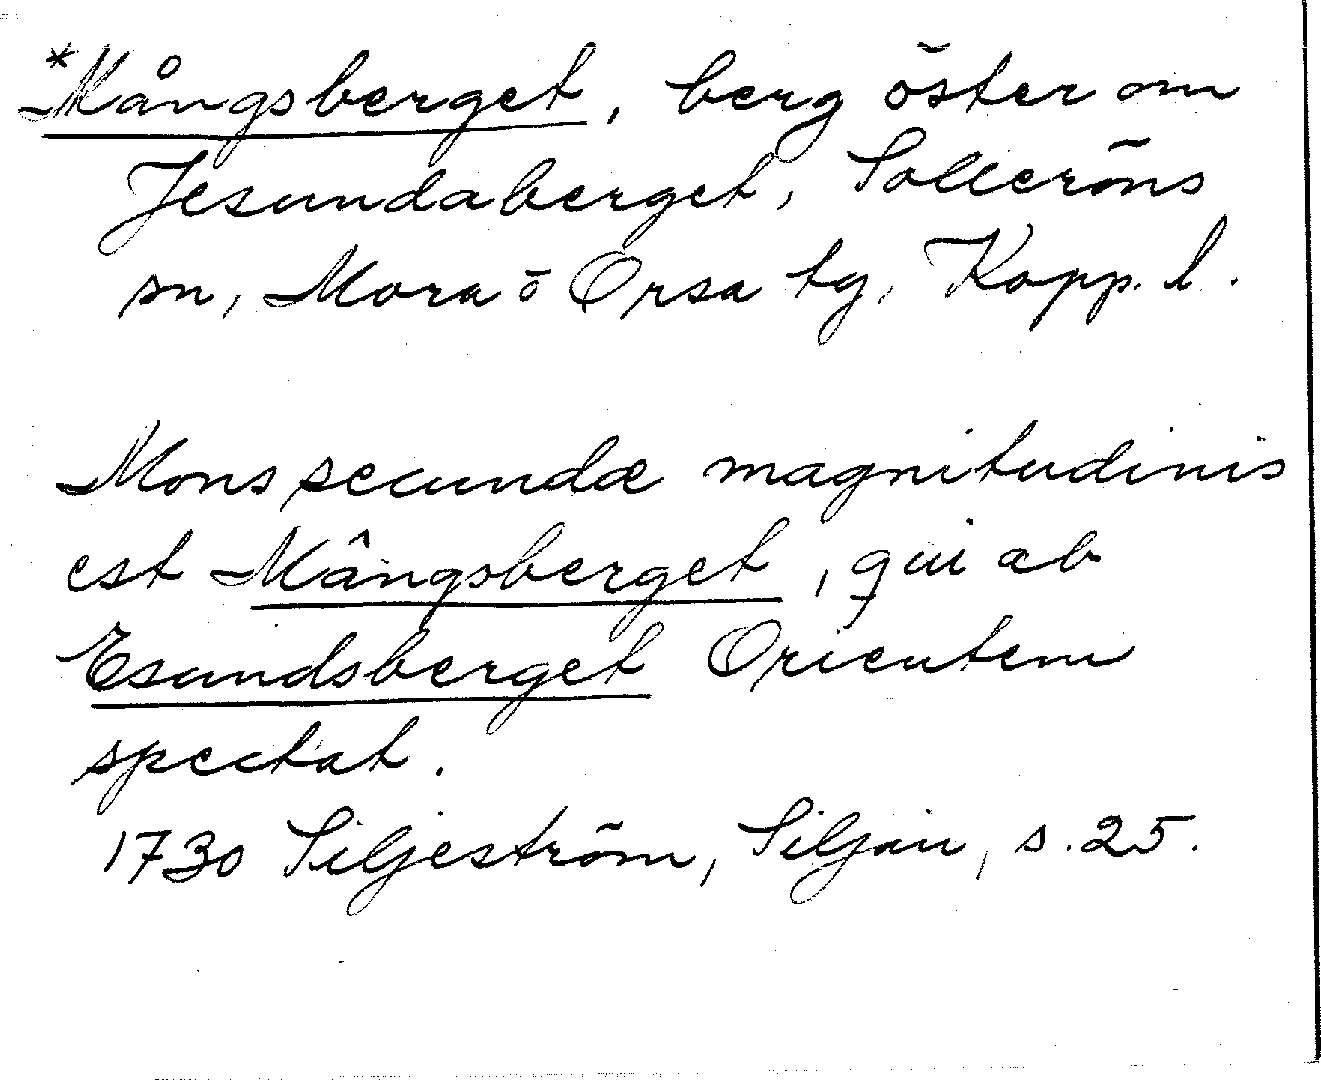 *Mångsberget, berg öster om
Jesundaberget, Solleröns
sn, Mora o Orsa tg, Kopp. l.
Mons secundæ magnitudinis
est Mângsberget, qui ab
Esundsberget Orientem
spectat.
1730 Siljeström, Siljan, s. 25.